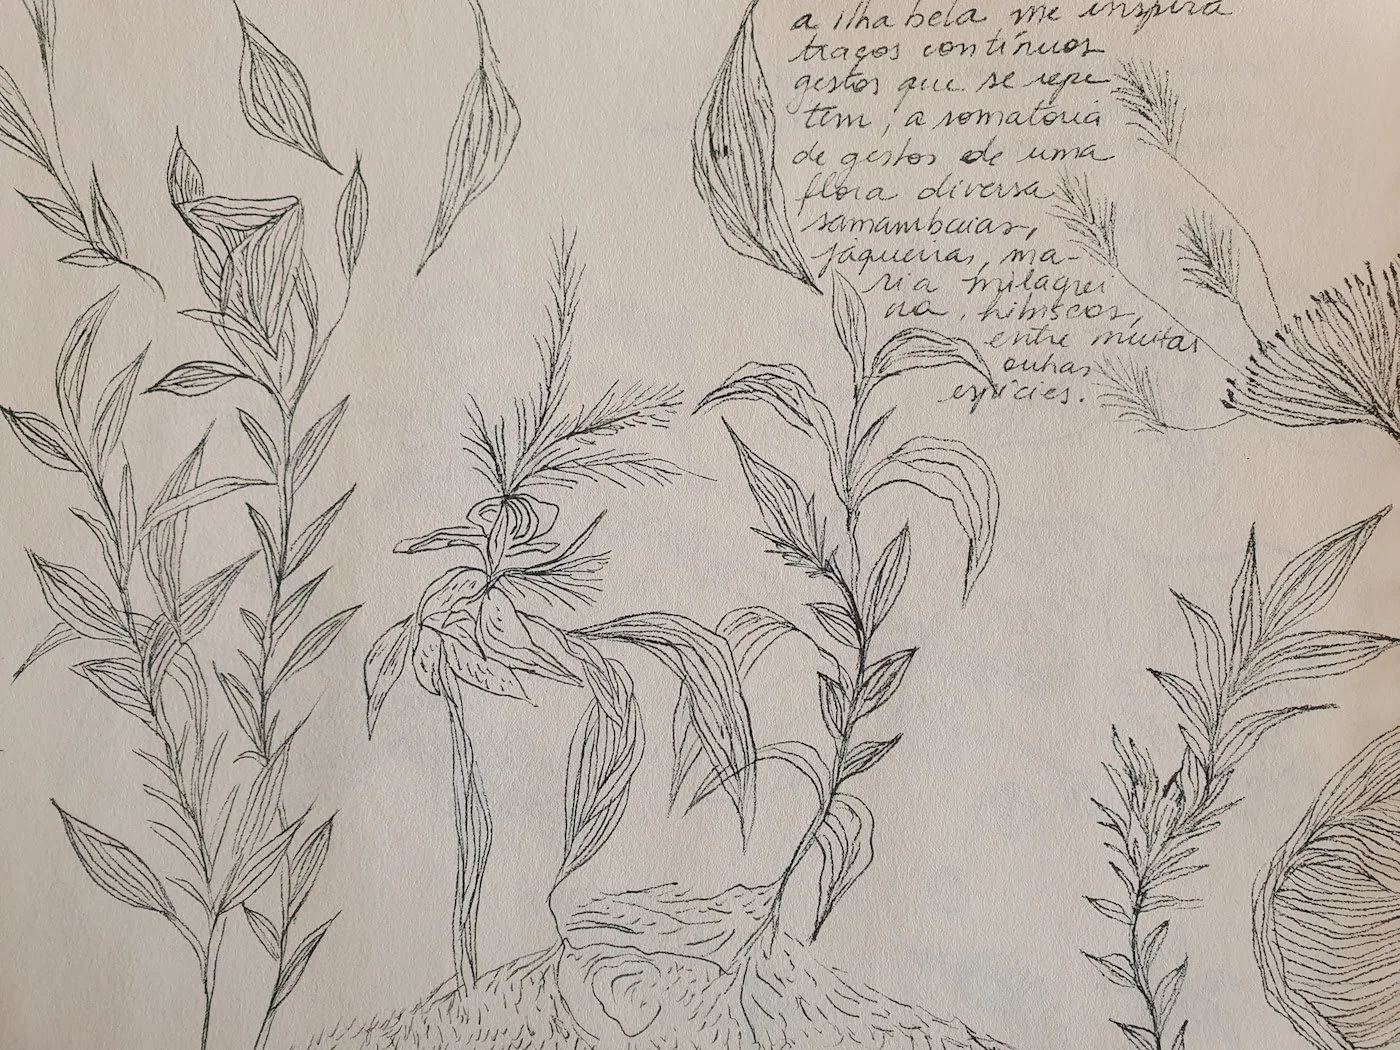 a ilha bela me inspira
traços contínuos
gestos que se repe
tem, a somatória
de gestos de uma
flora diversa
samambaias,
jaqueiras, ma-
ria milagrei
na, hibiscos,
entre muitas
outras
espécies.